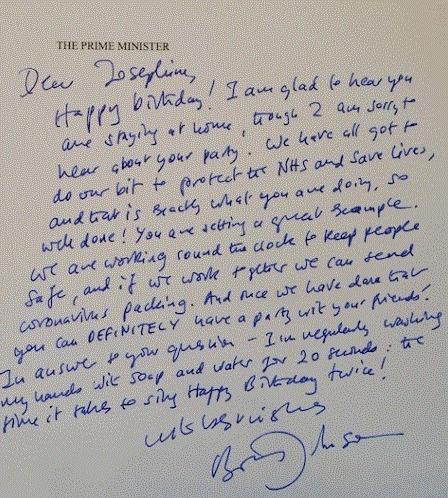 THE PRIME MINISTER
Dear Josephine,
Happy birthday! I am glad to hear you
are staying at home, though I am sorry to
hear about your party. We have all got to
do our bit to protect the NHS and save lives,
and that is exactly what you are doing, so
well done! You are setting a great example.
We are working round the clock to keep people
safe, and if we work together we can send
coronavirus packing. And once we have done that
you can DEFINITELY have a party with your friends!
In answer to your question - I'm regularly washing
my hands with soap and water for 20 seconds: the
time it takes to sing Happy Birthday twice!
with best wishes
Boris Johnson